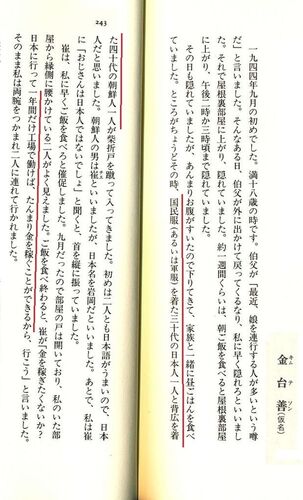 金台善(仮名)
キム テ ソン
一九四四年九月の初めでした。満十八歳の時です。伯父が「最近、娘を連行する人が多いという噂
だ」と言いました。そんなある日、伯父が外に出かけて戻ってくるなり、私に早く隠れろといいまし
た。それで屋根裏部屋に上がり、隠れていました。約一週間くらいは、朝ご飯を食べると屋根裏部屋
に上がり、午後二時か三時頃まで隠れていました。
その日も隠れていましたが、あんまりお腹がすいたので下りてきて、家族と一緒に昼ごはんを食べ
ていました。ところがちょうどその時、国民服(あるいは軍服)を着た三十代の日本人一人と背広を着
た四十代の朝鮮人一人が柴折戸を蹴って入ってきました。初めは二人とも日本語がうまいので、日本
人だと思いました。朝鮮人の男は崔といいましたが、日本名を岩岡だといいました。あとで、私は崔
に「おじさんは日本人ではないでしょ」と聞くと、首を縦に振っていました。
崔は、私に早くご飯を食べろと催促しました。九月だったので部屋の戸は開いており、私のいた部
屋から縁側に腰かけている二人がよく見えました。ご飯を食べ終わると、崔が「金を稼ぎたくないか?
日本に行って一年間だけ工場で働けば、たんまり金を稼ぐことができるから、行こう」と言いました。
そのまま私は両腕をつかまれ二人に連れて行かれました。
243